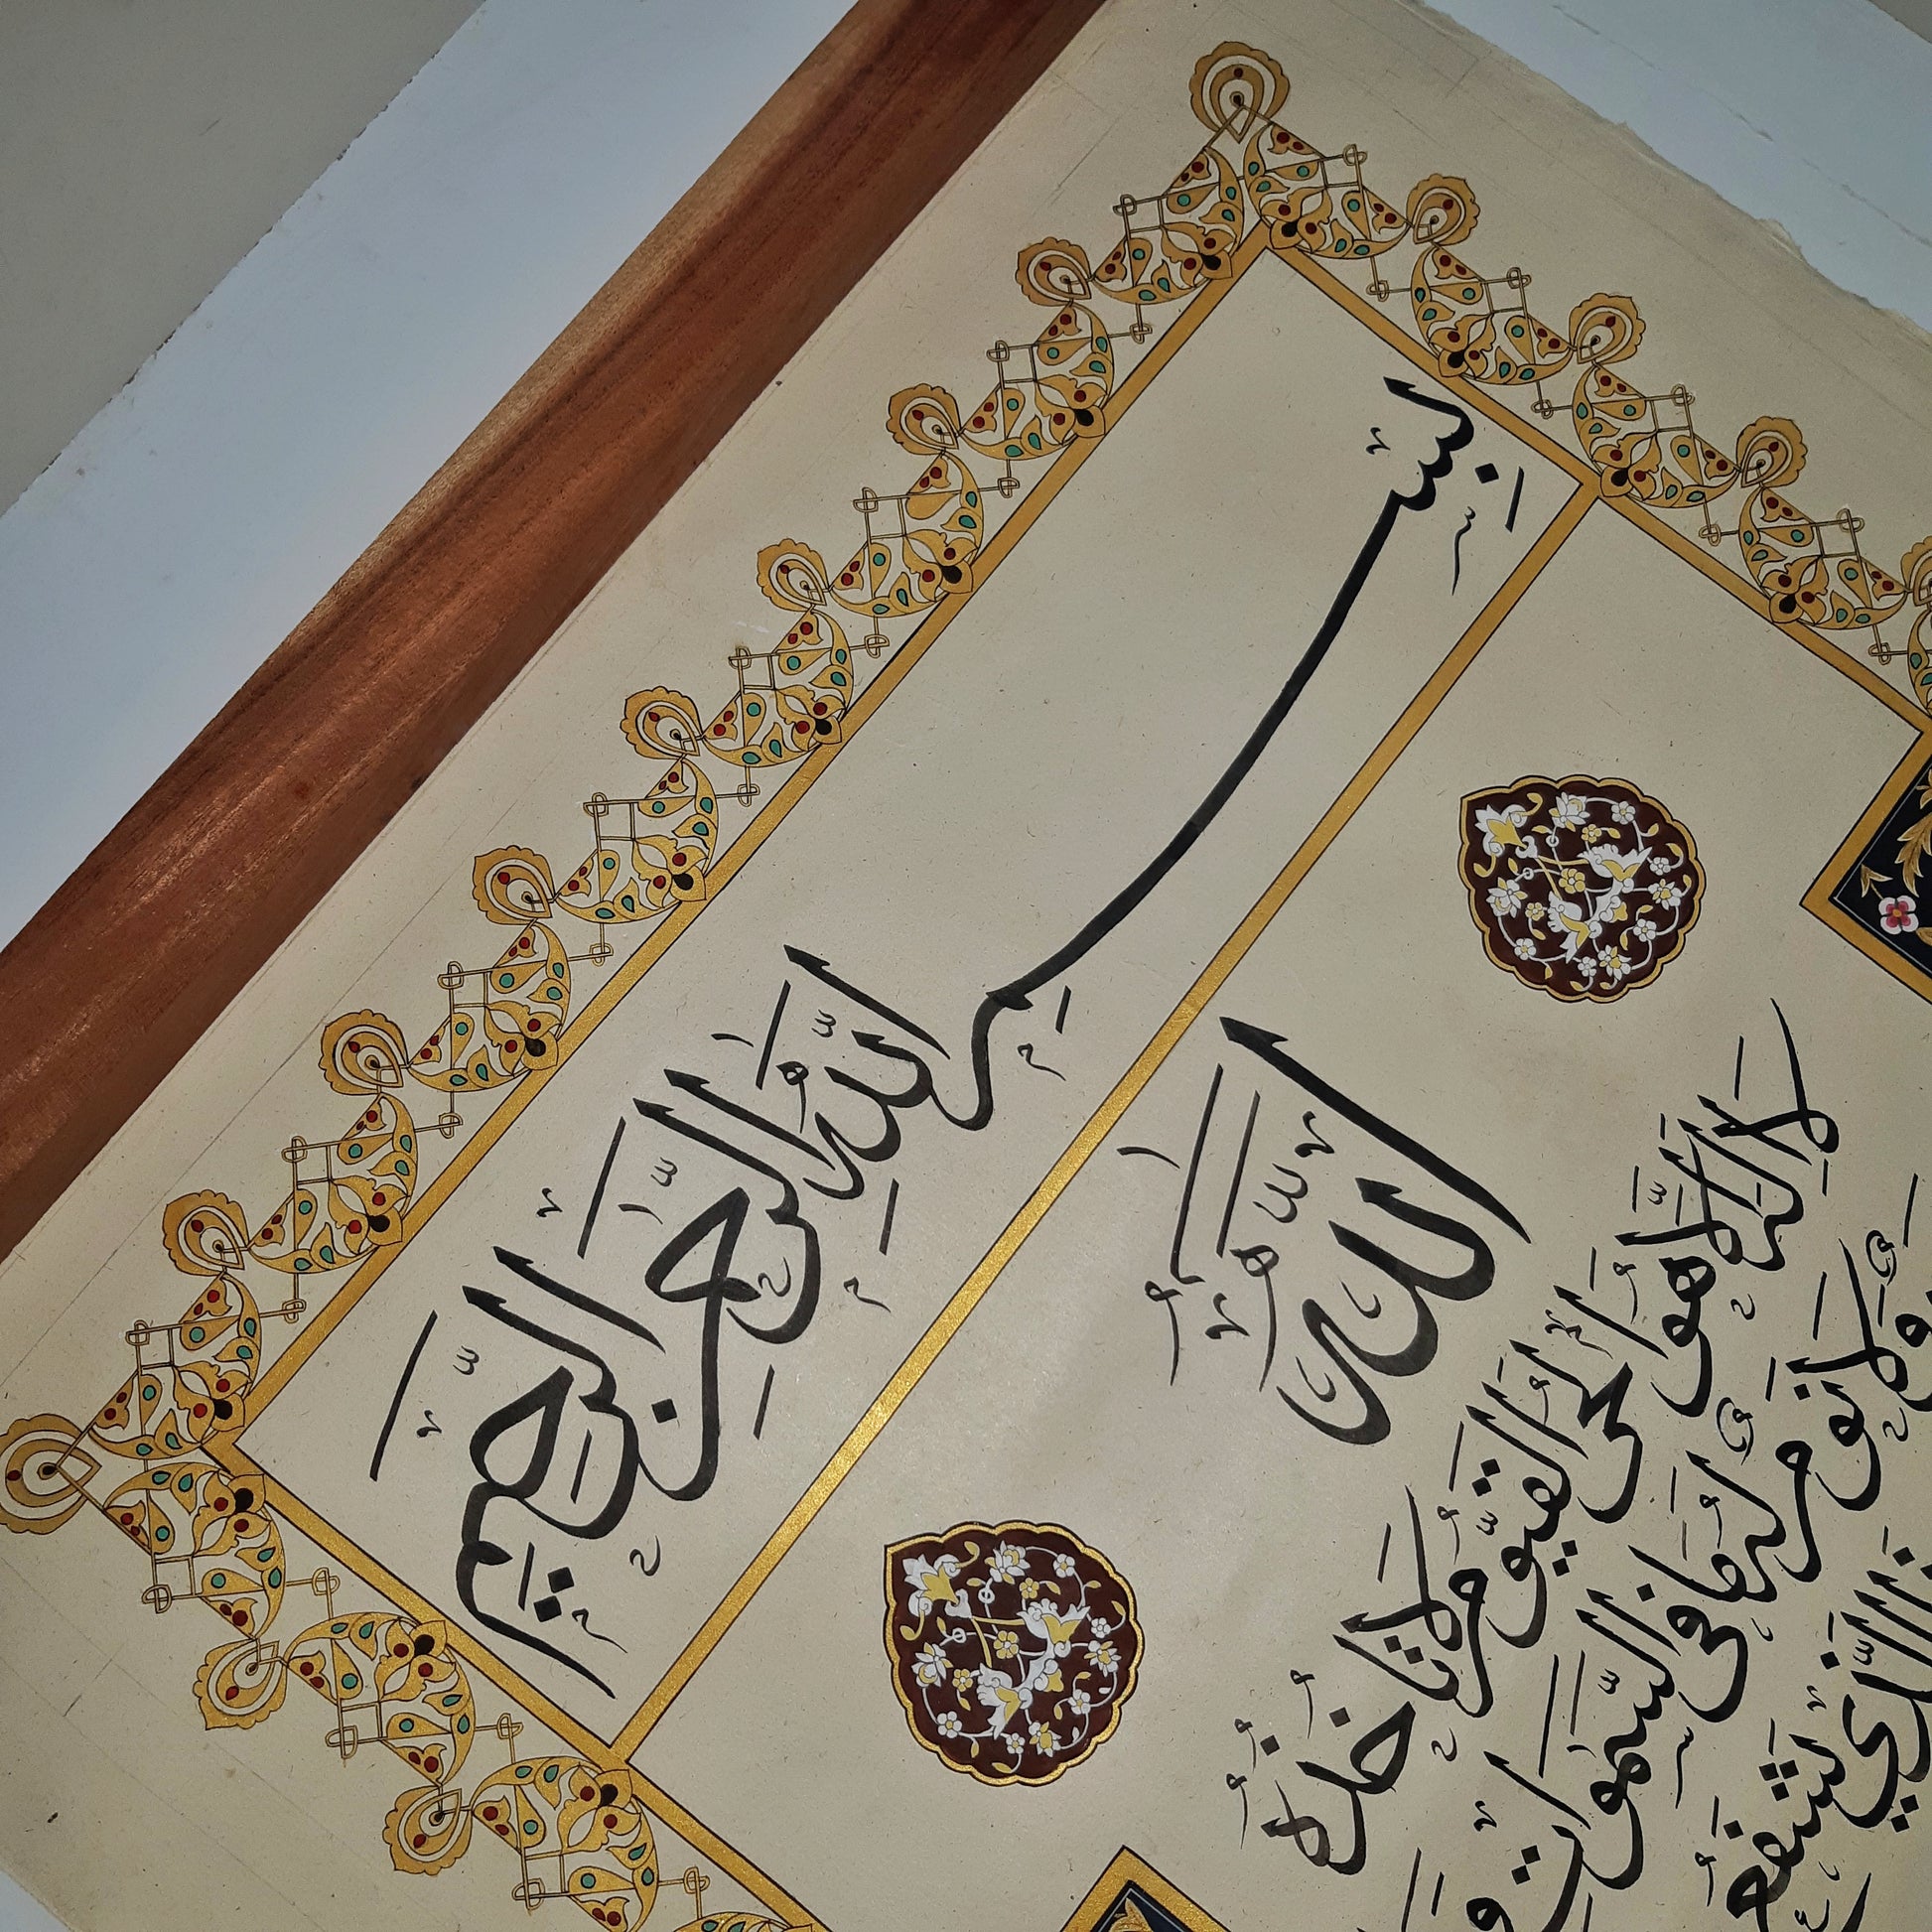 بِسْمِ اللَّهِ الرَّحْمَٰنِ الرَّحِيمِ
اللَّهُ
لَا إِلَٰهَ إِلَّا هُوَ الْحَيُّ الْقَيُّومُ لَا تَأْخُذُهُ
وَلَا نَوْمٌ لَهُ مَا فِي السَّمَٰوَاتِ وَ
الَّذِي يَشْفَعُ